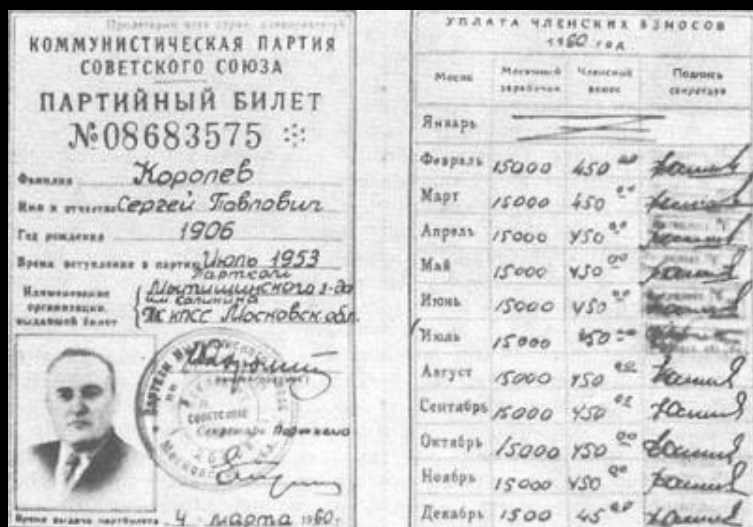 Пролетарии всех стран, соединяйтесь!
КОММУНИСТИЧЕСКАЯ ПАРТИЯ
СОВЕТСКОГО СОЮЗА
ПАРТИЙНЫЙ БИЛЕТ
№08683575
Фамилия Королев
Имя и отчество Сергей Павлович
Год рождения 1906
Время вступления в партию Июль 1953
Наименование организации, выдавшей билет
Партком
Мытищинского з-да
им Калинина
КПСС Московск обл.
СОВЕТСКИЙ
Секретарь Парткома
Время выдачи партбилета 4 марта 1960 г.
УПЛАТА ЧЛЕНСКИХ ВЗНОСОВ
1960 год
Месяц Месячный заработок Членский взнос Подпись секретаря
Январь
Февраль 15000 450 00
Март 15000 450 00
Апрель 15000 450 00
Май 15000 450 00
Июнь 15000 450 00
Июль 15000 450 00
Август 15000 450 00
Сентябрь 15000 450 00
Октябрь 15000 450 00
Ноябрь 15000 450 00
Декабрь 1500 45 00